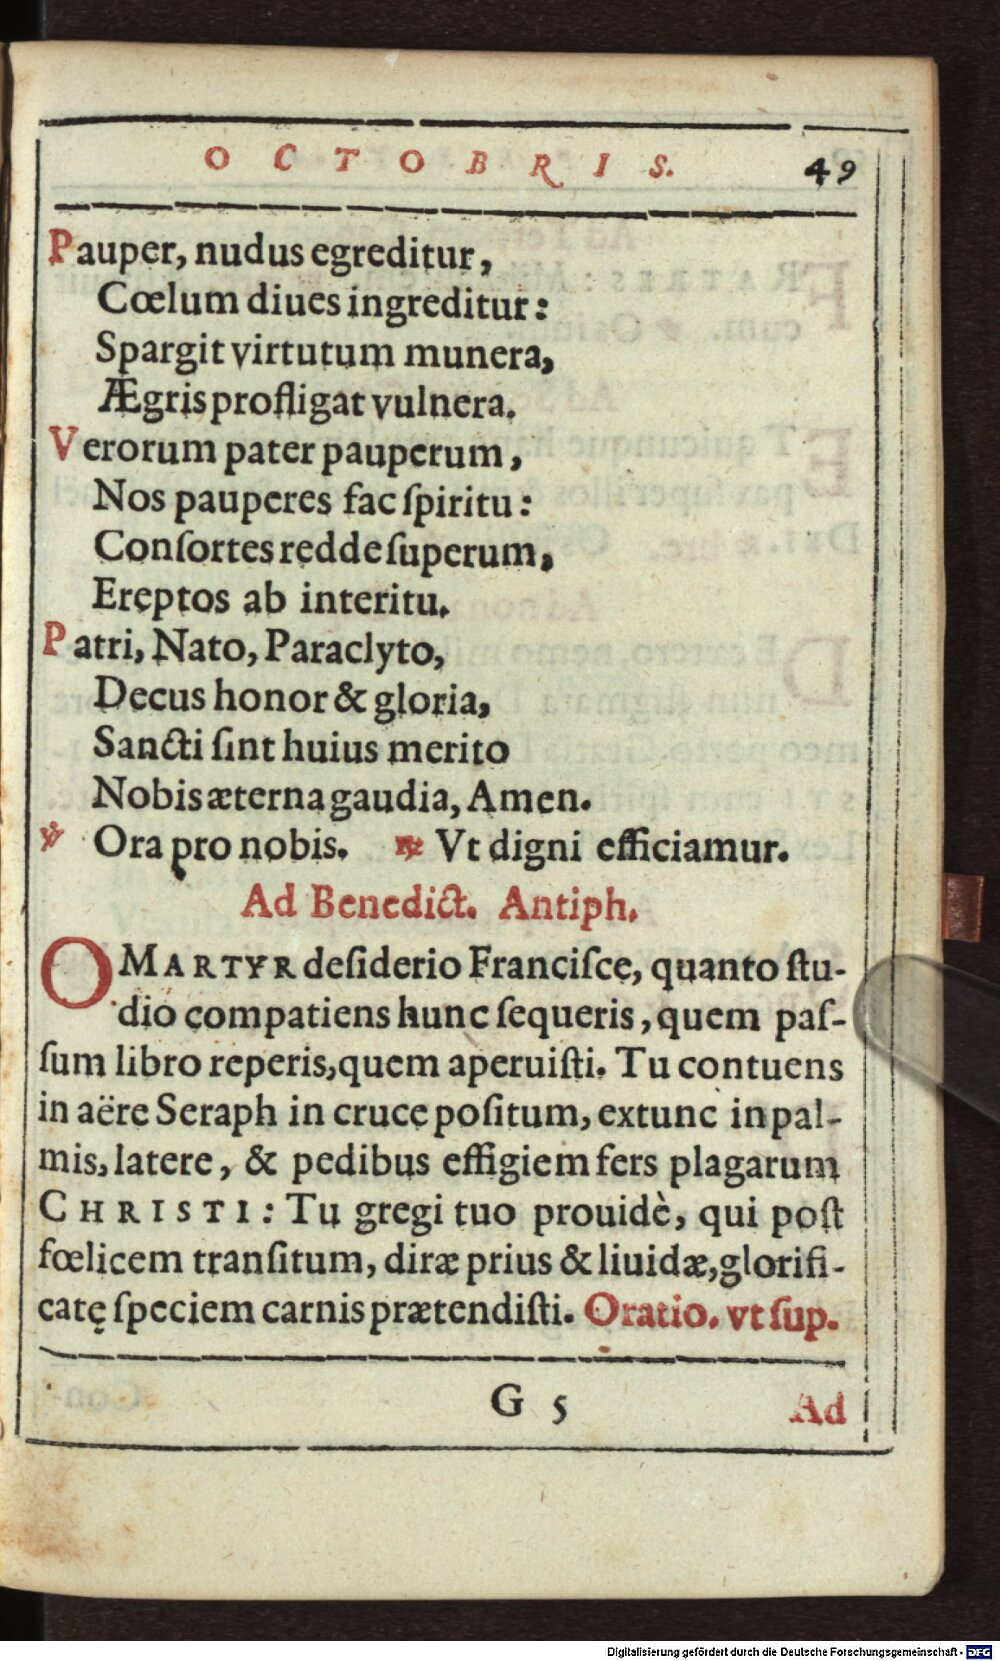 OCTOBRIS. 49
Pauper, nudus egreditur,
Cœlum diues ingreditur:
Spargit virtutum munera,
Ægris profligat vulnera.
Verorum pater pauperum,
Nos pauperes fac ſpiritu:
Conſortes redde ſuperum,
Ereptos ab interitu.
Patri, Nato, Paraclyto,
Decus honor & gloria,
Sancti ſint huius merito
Nobis æterna gaudia, Amen.
℣ Ora pro nobis. ℟ Vt digni efficiamur.
Ad Benedict. Antiph.
O MARTYR deſiderio Franciſce, quanto ſtu-
dio compatiens hunc ſequeris, quem paſ-
ſum libro reperis, quem aperuiſti. Tu contuens
in aëre Seraph in cruce poſitum, extunc in pal-
mis, latere, & pedibus effigiem fers plagarum
CHRISTI: Tu gregi tuo prouidè, qui poſt
fœlicem tranſitum, diræ prius & liuidæ, glorifi-
catę ſpeciem carnis prætendiſti. Oratio. vt ſup.
G 5 Ad
Digitalisierung gefördert durch die Deutsche Forschungsgemeinschaft - DFG